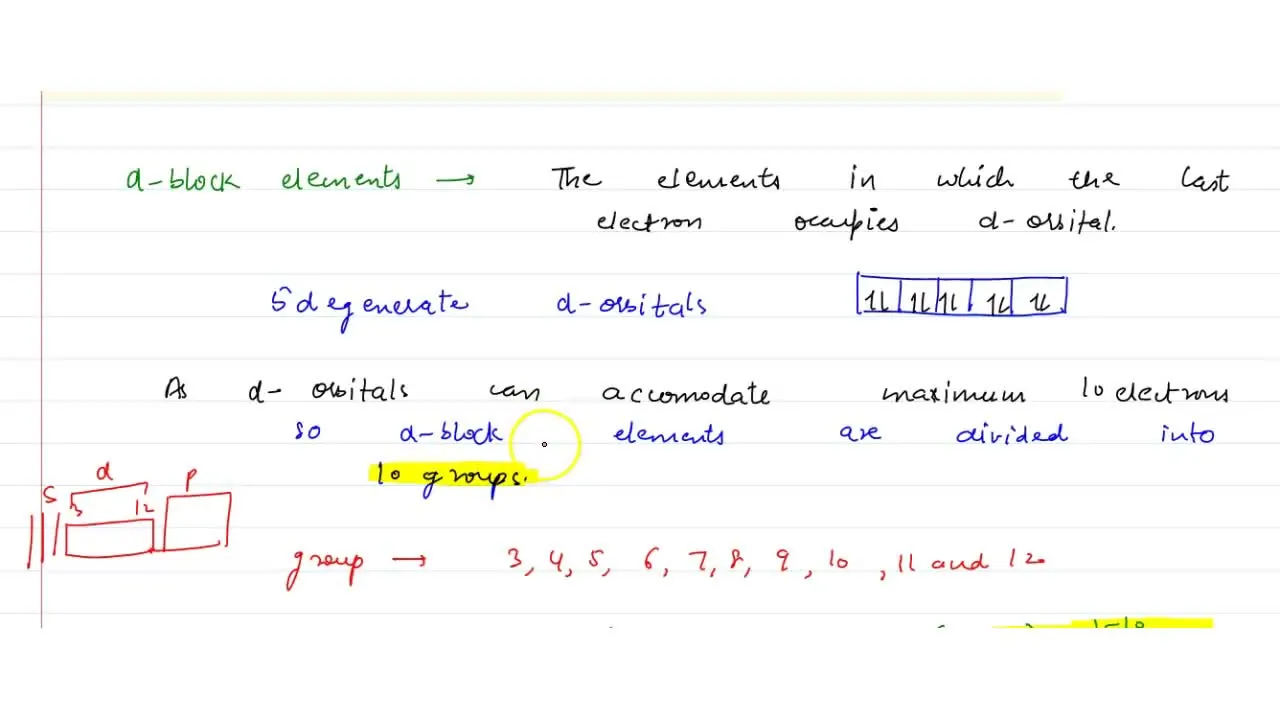 d-block elements → The elements in which the last
electron occupies d-orbital.
5 degenerate d-orbitals 1L 1L 1L 1L 1L
As d- orbitals can accomodate maximum 10 electrons
so d-block elements are divided into
10 groups.
S d P
3 12
group → 3, 4, 5, 6, 7, 8, 9, 10, 11 and 12